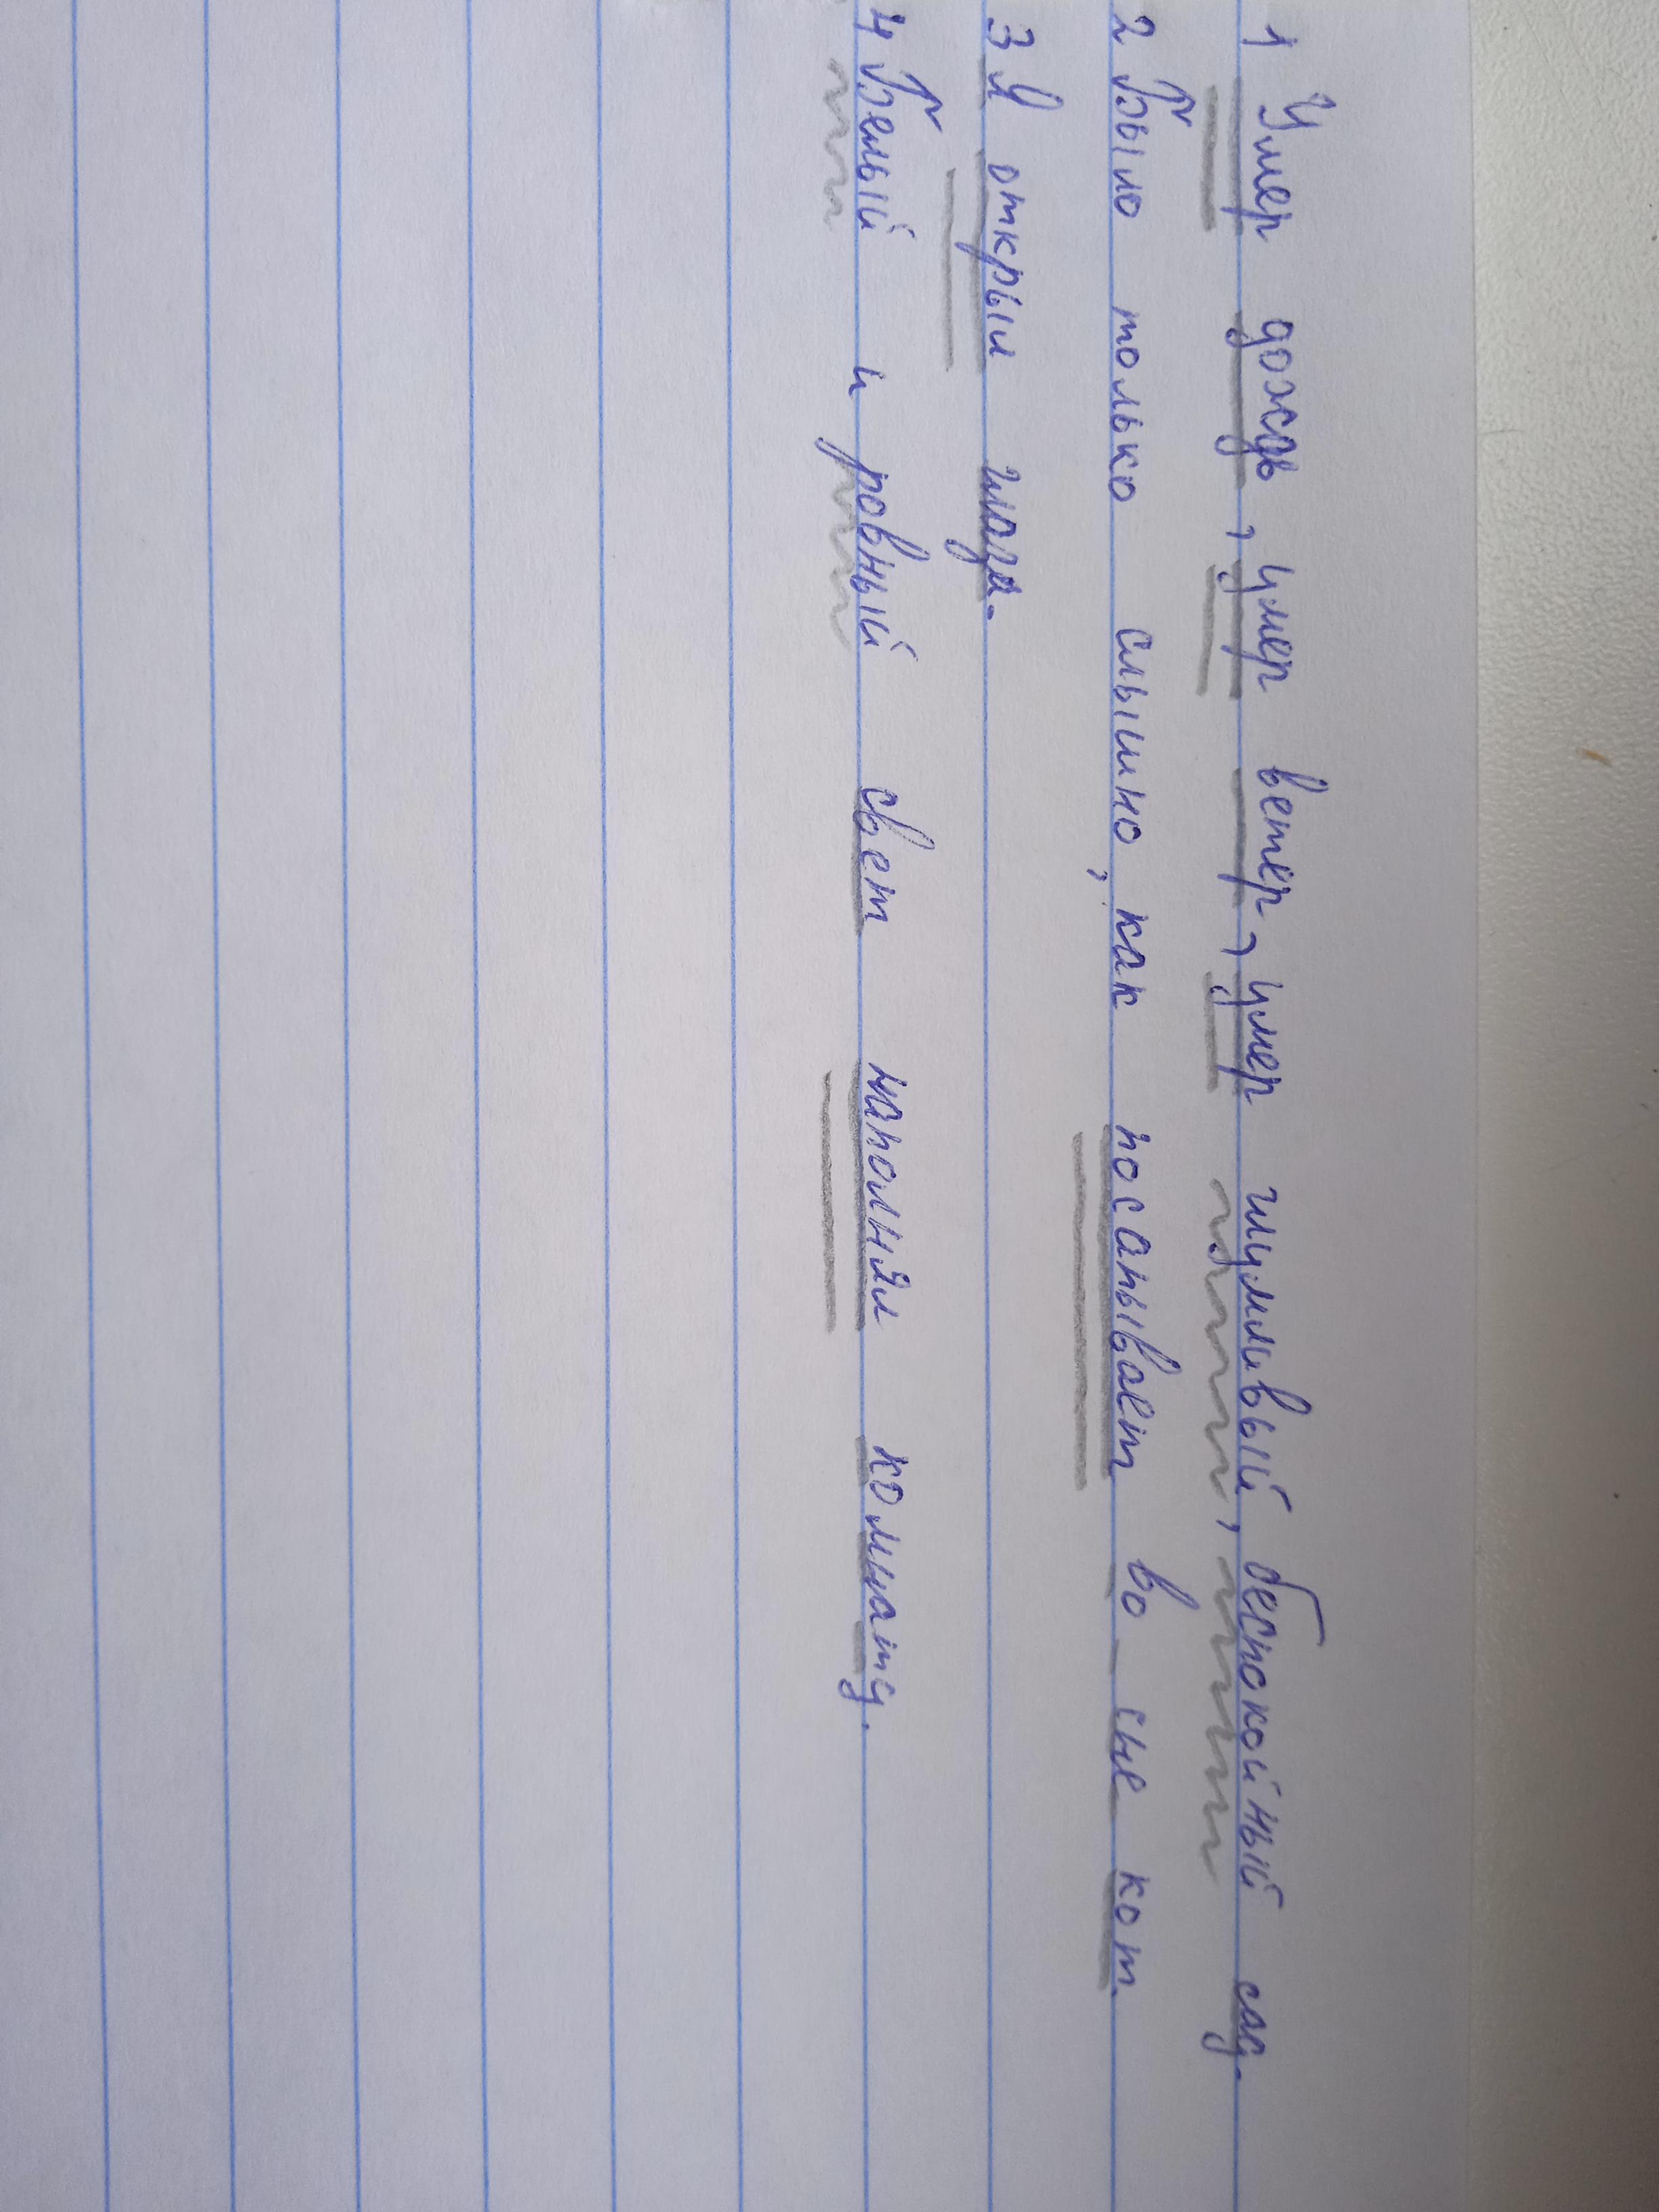 1 Умер дождь, умер ветер, умер шумливый, беспокойный сад.
2 Было только слышно, как посапывает во сне кот.
3 Я открыл глаза.
4 Белый и ровный свет наполнял комнату.